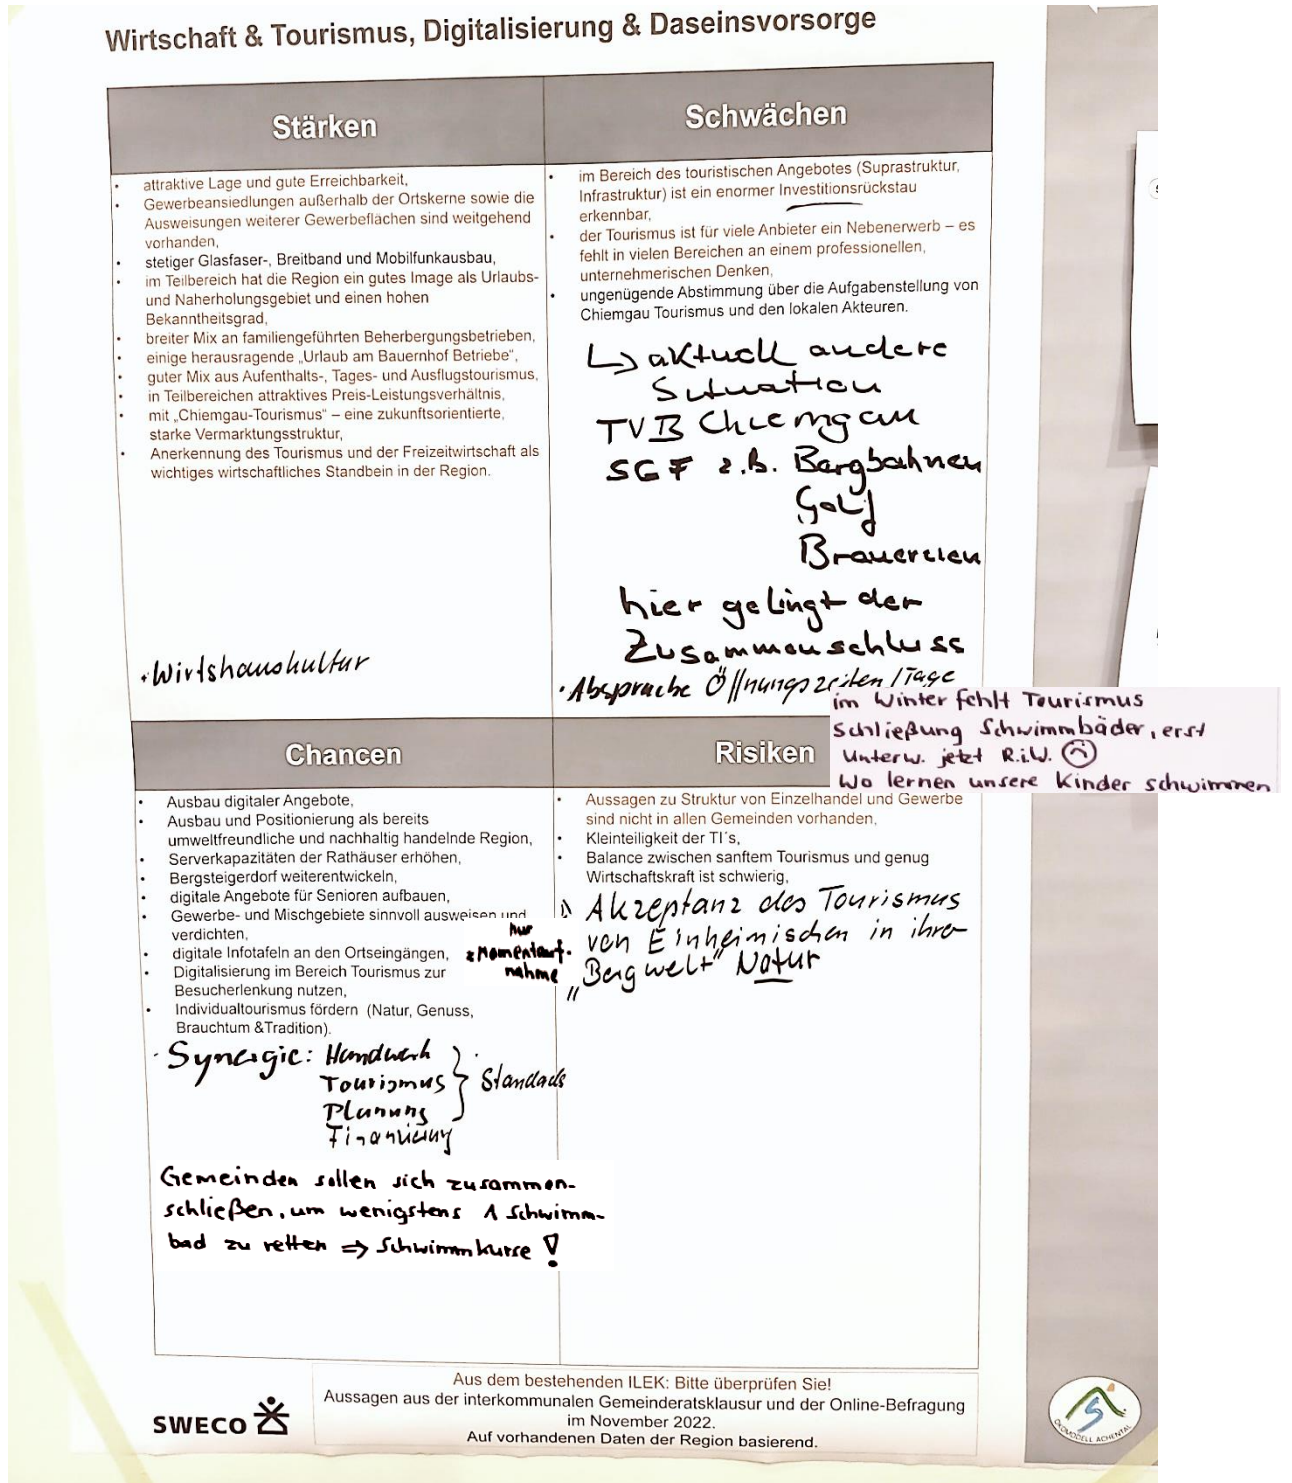 Wirtschaft & Tourismus, Digitalisierung & Daseinsvorsorge
Stärken
• attraktive Lage und gute Erreichbarkeit,
• Gewerbeansiedlungen außerhalb der Ortskerne sowie die
Ausweisungen weiterer Gewerbeflächen sind weitgehend
vorhanden,
• stetiger Glasfaser-, Breitband und Mobilfunkausbau,
• im Teilbereich hat die Region ein gutes Image als Urlaubs-
und Naherholungsgebiet und einen hohen
Bekanntheitsgrad,
• breiter Mix an familiengeführten Beherbergungsbetrieben,
• einige herausragende „Urlaub am Bauernhof Betriebe“,
• guter Mix aus Aufenthalts-, Tages- und Ausflugstourismus,
• in Teilbereichen attraktives Preis-Leistungsverhältnis,
• mit „Chiemgau-Tourismus“ – eine zukunftsorientierte,
starke Vermarktungsstruktur,
• Anerkennung des Tourismus und der Freizeitwirtschaft als
wichtiges wirtschaftliches Standbein in der Region.
• Wirtshauskultur
Schwächen
• im Bereich des touristischen Angebotes (Suprastruktur,
Infrastruktur) ist ein enormer Investitionsrückstau
erkennbar,
• der Tourismus ist für viele Anbieter ein Nebenerwerb – es
fehlt in vielen Bereichen an einem professionellen,
unternehmerischen Denken,
• ungenügende Abstimmung über die Aufgabenstellung von
Chiemgau Tourismus und den lokalen Akteuren.
↳ aktuell andere
Situation
TVB Chiemgau
SGF z.B. Bergbahnen
Golf
Brauereien
hier gelingt der
Zusammenschluss
• Absprache Öffnungszeiten/Tage
im Winter fehlt Tourismus
Schließung Schwimmbäder, erst
Unterw. jetzt R.i.W. ☹
Wo lernen unsere Kinder schwimmen
Chancen
• Ausbau digitaler Angebote,
• Ausbau und Positionierung als bereits
umweltfreundliche und nachhaltig handelnde Region,
• Serverkapazitäten der Rathäuser erhöhen,
• Bergsteigerdorf weiterentwickeln,
• digitale Angebote für Senioren aufbauen,
• Gewerbe- und Mischgebiete sinnvoll ausweisen und
verdichten,
• digitale Infotafeln an den Ortseingängen,
• Digitalisierung im Bereich Tourismus zur
Besucherlenkung nutzen,
• Individualtourismus fördern (Natur, Genuss,
Brauchtum &Tradition).
nur
Momentauf-
nahme
• Synergie: Handwerk
Tourismus } Standads
Planung
Finanzierung
Gemeinden sollen sich zusammen-
schließen, um wenigstens 1 Schwimm-
bad zu retten ⇒ Schwimmkurse !
Risiken
• Aussagen zu Struktur von Einzelhandel und Gewerbe
sind nicht in allen Gemeinden vorhanden,
• Kleinteiligkeit der TI´s,
• Balance zwischen sanftem Tourismus und genug
Wirtschaftskraft ist schwierig,
Akzeptanz des Tourismus
von Einheimischen in ihrer
„Bergwelt“ Natur
SWECO
Aus dem bestehenden ILEK: Bitte überprüfen Sie!
Aussagen aus der interkommunalen Gemeinderatsklausur und der Online-Befragung
im November 2022.
Auf vorhandenen Daten der Region basierend.
ÖKOMODELL ACHENTAL